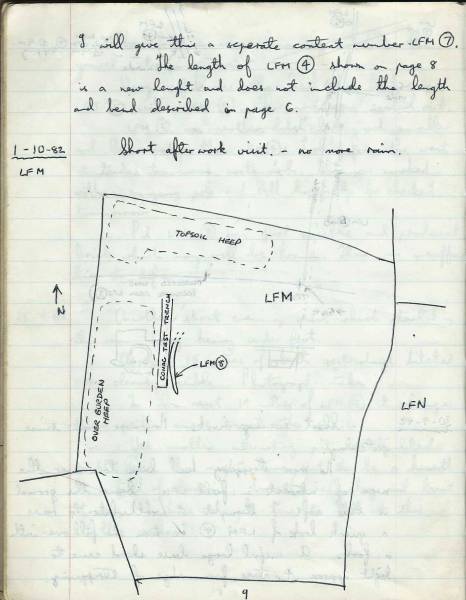 I will give this a seperate content number LFM ⑦.
The length of LFM ④ shown on page 8
is a new lenght and does not include the length
and bend described in page 6.
1-10-82 Short after work visit. - no more rain.
LFM
TOPSOIL HEEP
LFM
↑
N
TEST TRENCH
LFM ⑧
OVER BURDEN
HEEP
LFN
9